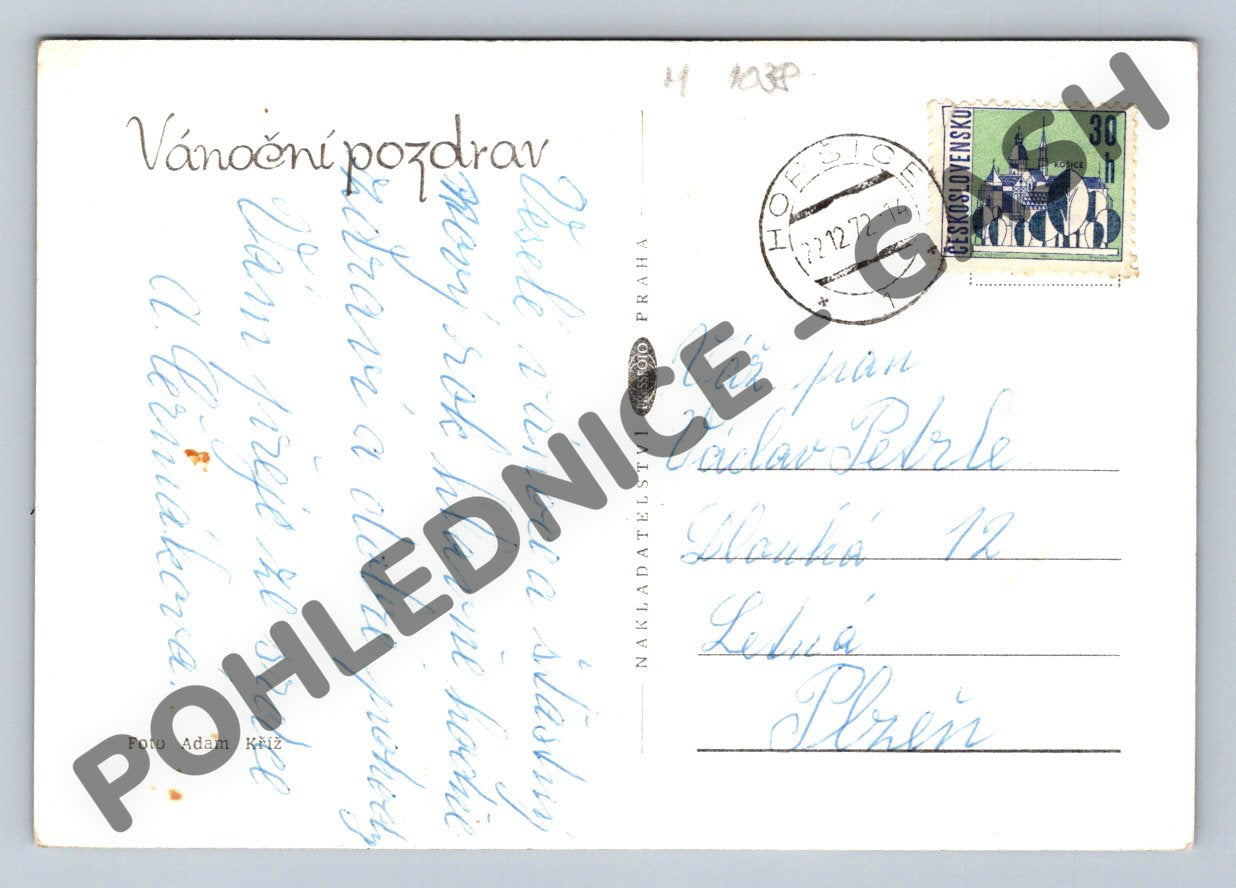 M 1038
Vánoční pozdrav
Veselé vánoce a šťastný
nový rok hlavně hodně
zdraví a duševní pohody
Vám přeje ze srdce
A. Čermáková.
Foto Adam Kříž
NAKLADATELSTVÍ PRESSFOTO PRAHA
HOLEŠICE
22.12.72-14
1
ČESKOSLOVENSKO
30 h
KOŠICE
Váž pan
Václav Petrle
Dlouhá 12
Letná
Plzeň
POHLEDNICE - G
SH